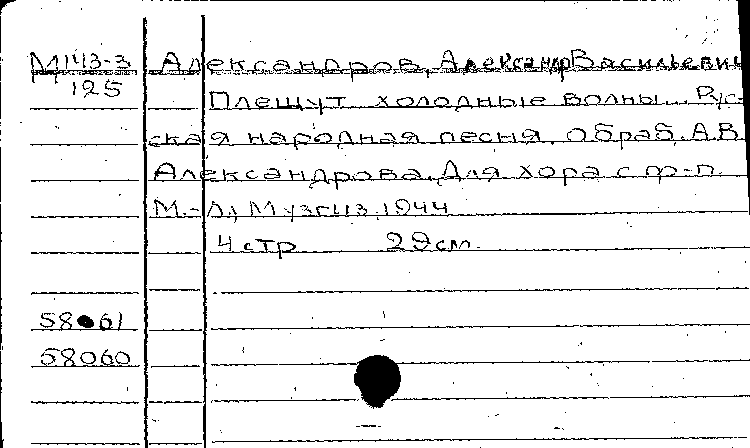 М143-3 Александров, Александр Васильевич
125 Плещут холодные волны... Рус-
ская народная песня. Обраб. А.В.
Александрова. Для хора с ф-п.
М.-Л., Музгиз, 1944
4 стр 29 см.
58061
58060